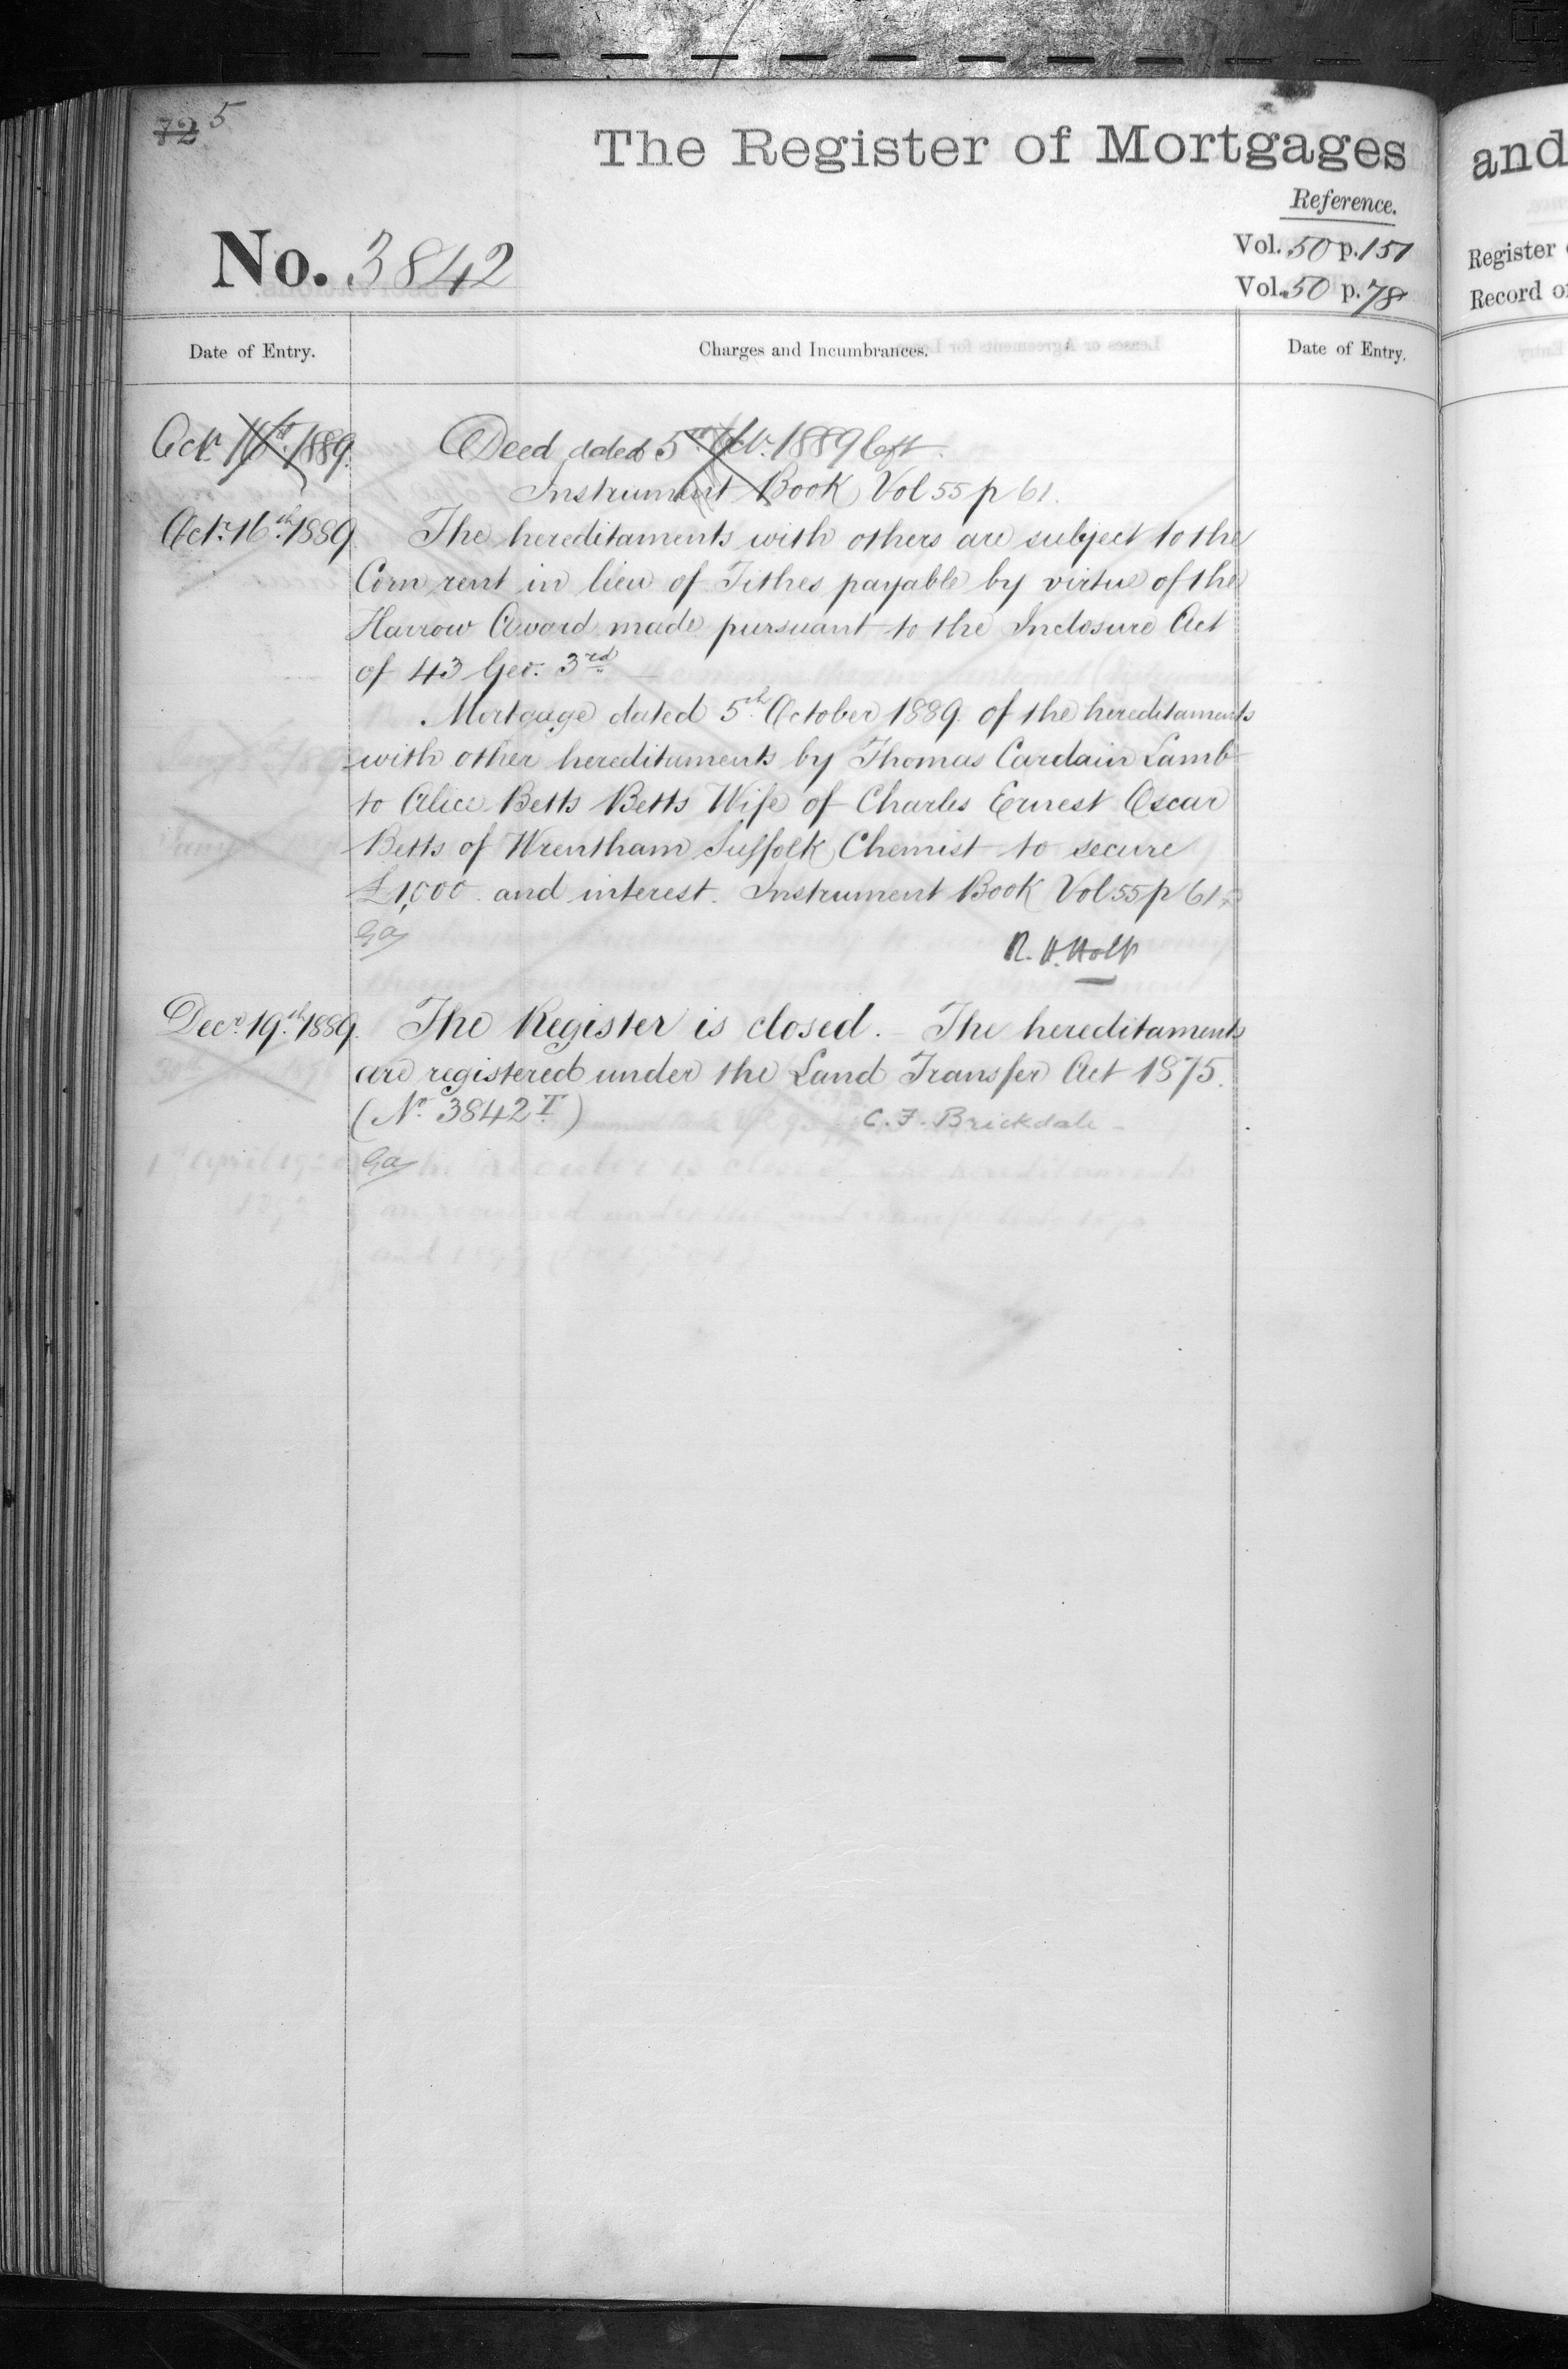 72 5
The Register of Mortgages
and
Reference.
No. 3842
Vol. 50 p. 151
Vol. 50 p. 78
Register
Record
Date of Entry.
Charges and Incumbrances.
Date of Entry.
Octr. 1889.
Deed dated 5th Octr. 1889 left.
Instrument Book Vol 55 p 61.
Octr. 16th 1889
The hereditaments with others are subject to the
Corn rent in lieu of Tithes payable by virtue of the
Harrow Award made pursuant to the Inclosure Act
of 43 Geo. 3rd
Mortgage dated 5th October 1889 of the hereditaments
with other hereditaments by Thomas Cardain Lamb
to Alice Betts Betts Wife of Charles Ernest Oscar
Betts of Wrentham Suffolk Chemist to secure
£1,000 and interest. Instrument Book Vol 55 p 61
R. H. Holt
Decr. 19th 1889.
The Register is closed. The hereditaments
are registered under the Land Transfer Act 1875.
(No. 3842 T)
C. F. Brickdale